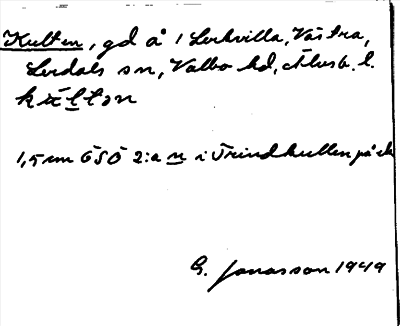 Kulten, gd å 1 Lerkvilla, Västra,
Lerdals sn, Valbo hd, Älvsb. l.
kul̲tan
1,5 mm ÖSÖ 2:a n̲ i Trindkullen på ek
G. Jonasson 1949